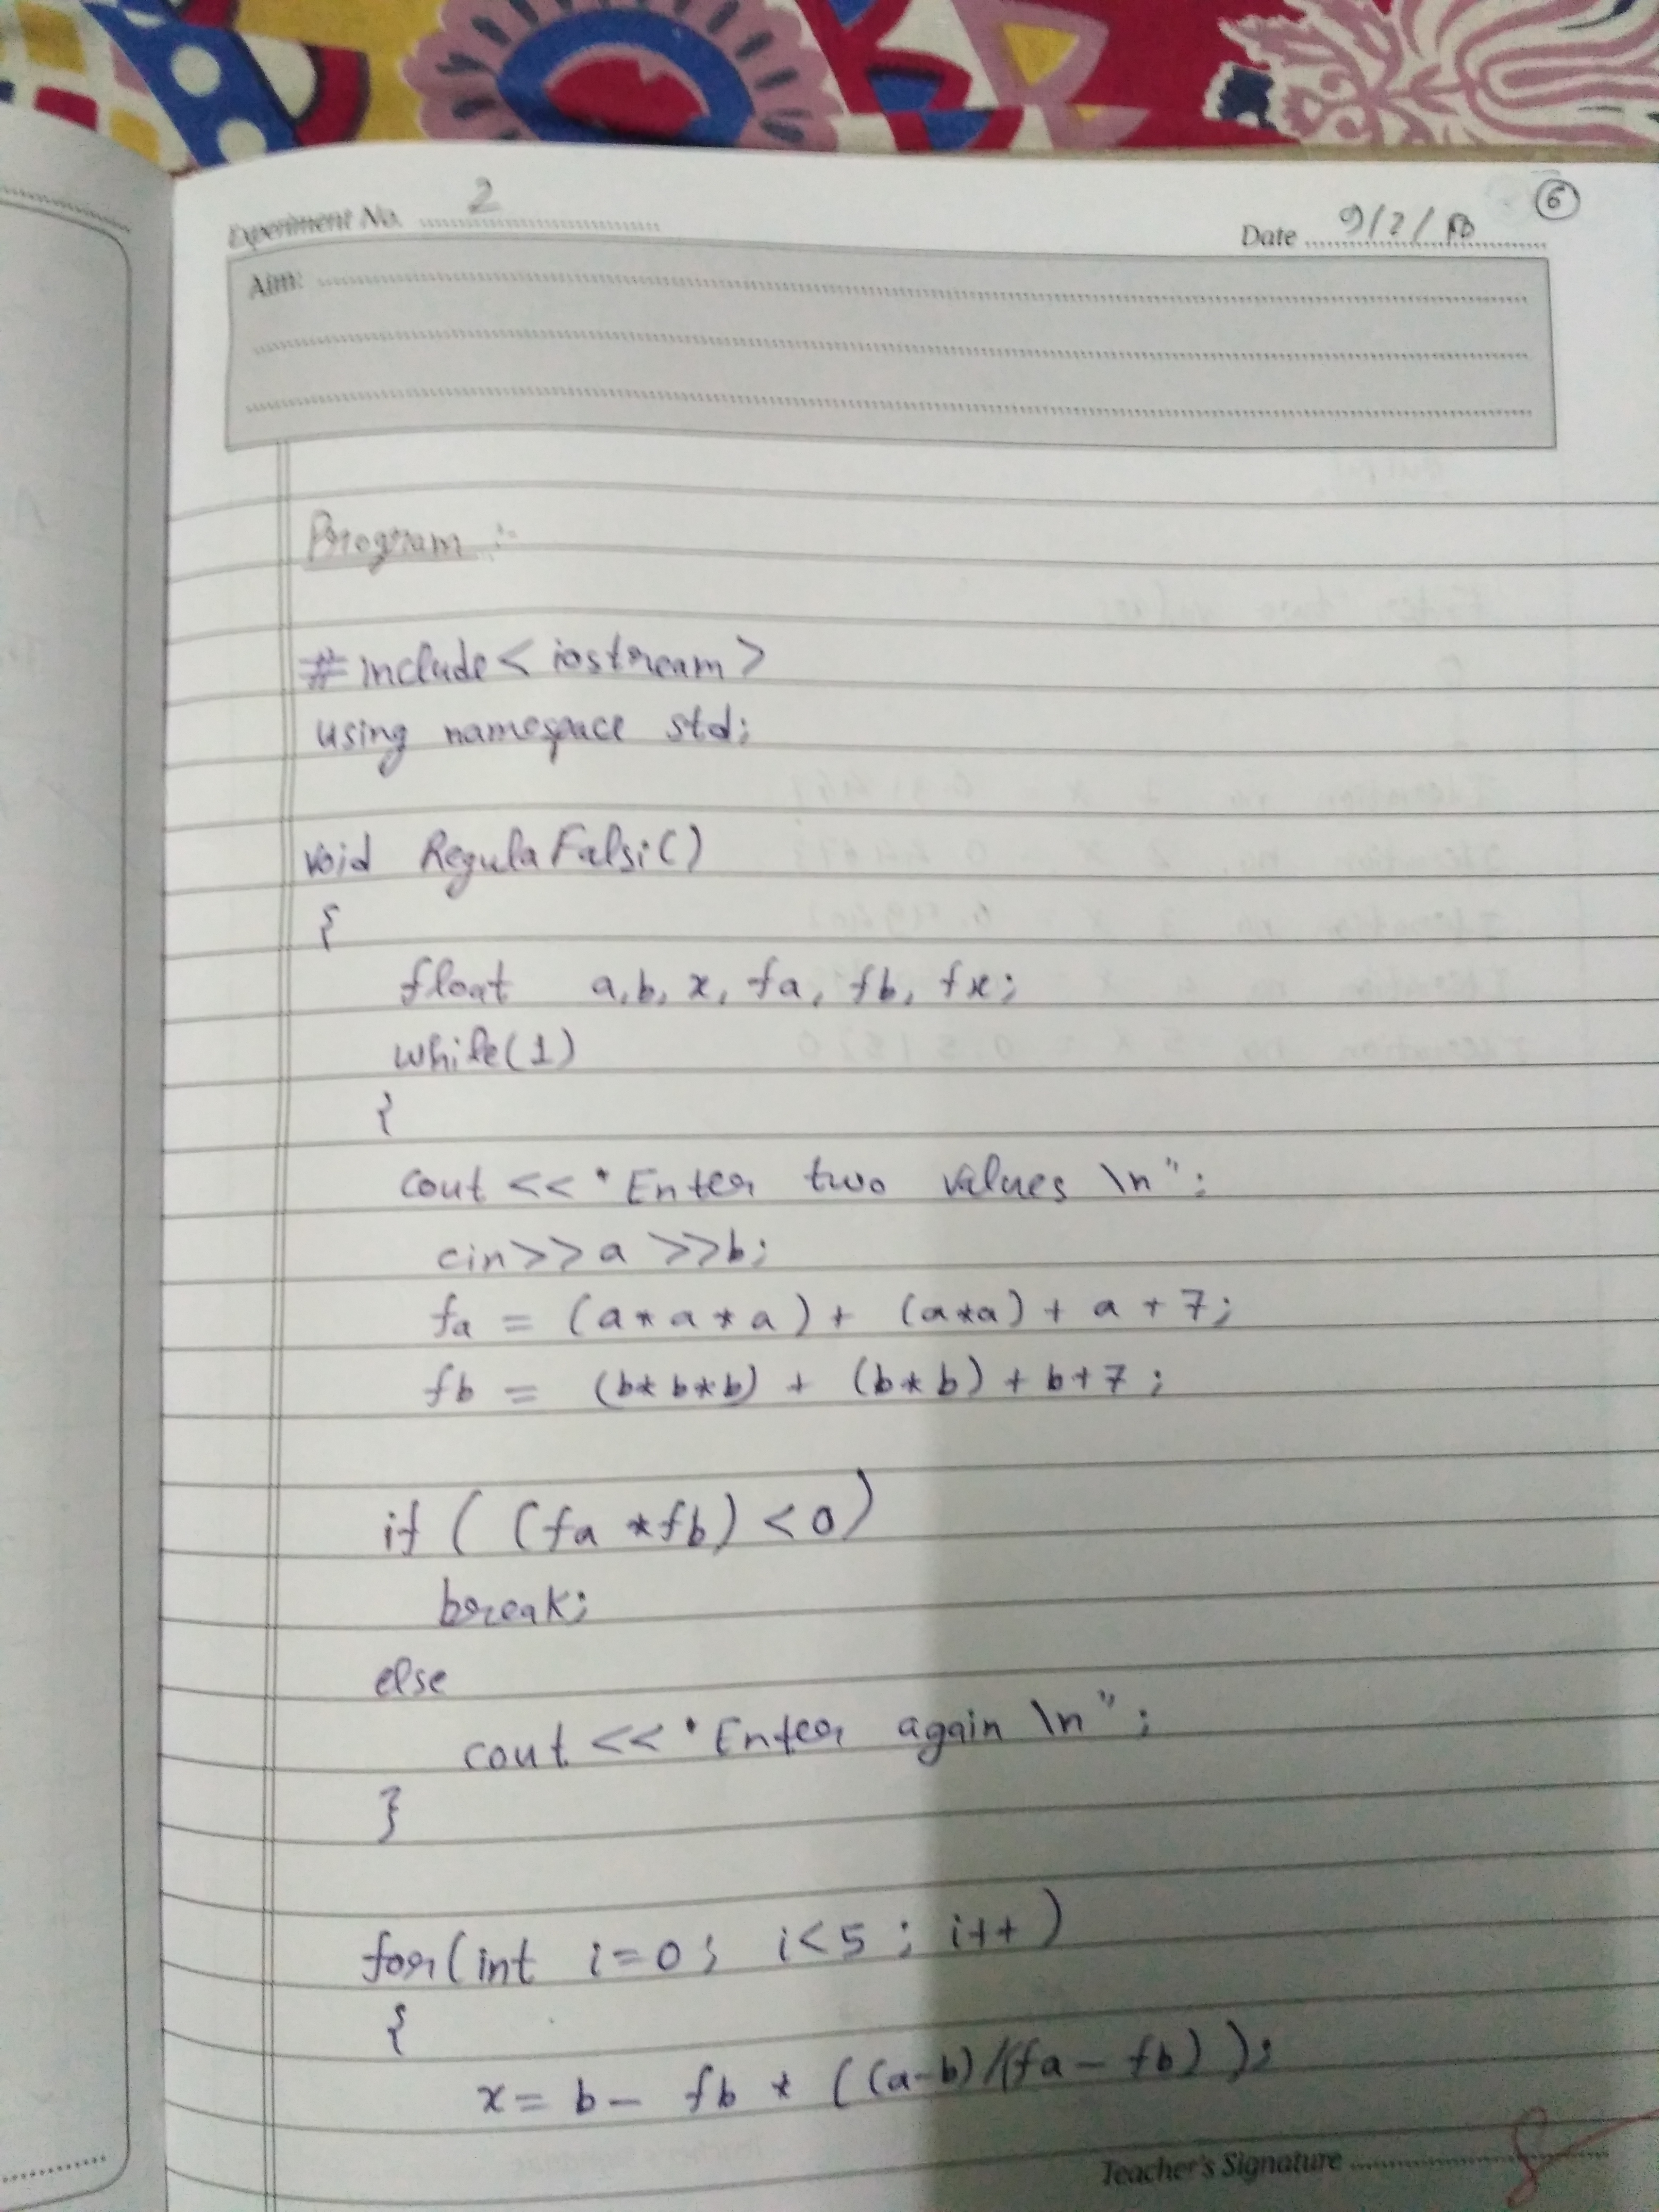 6
Experiment No. 2
Date 9/2/
Aim:
Program :-
#include < iostream >
using namespace std;
void RegulaFalsi()
{
float a, b, x, fa, fb, fx;
while(1)
{
cout << "Enter two values \n";
cin>>a >>b;
fa = (a*a*a) + (a*a) + a + 7;
fb = (b*b*b) + (b*b) + b+7;
if ( (fa *fb) <0)
break;
else
cout << "Enter again \n";
}
for(int i=0; i<5 ; i++)
{
x= b- fb * ((a-b)/(fa - fb) );
Teacher's Signature